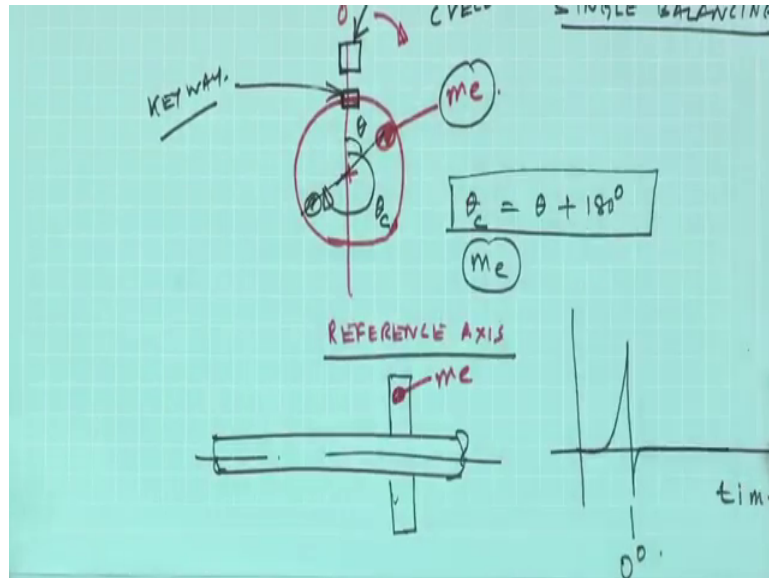 0
CYCLE
SINGLE BALANCING
KEYWAY.
me.
θ
θc
θc = θ + 180°
me
REFERENCE AXIS
me
tim
0°.